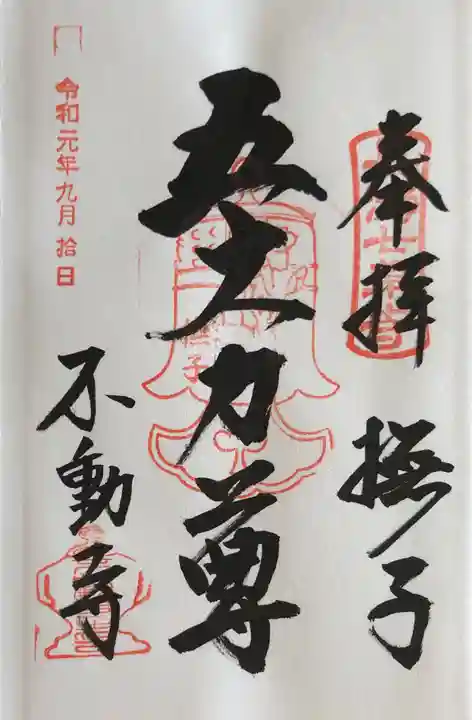 奉拝
撫子
五大力尊
令和元年九月拾日
不動寺
撫子